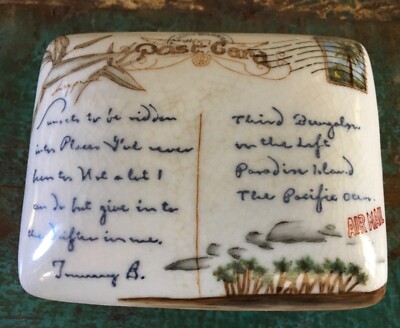 Post Card
to be ridden
into Places never
to Not a lot I
can do but give in to
the drifter in me.
B.
Third Bungalow
on the Left
Paradise Island
The Pacific
AIR MAIL